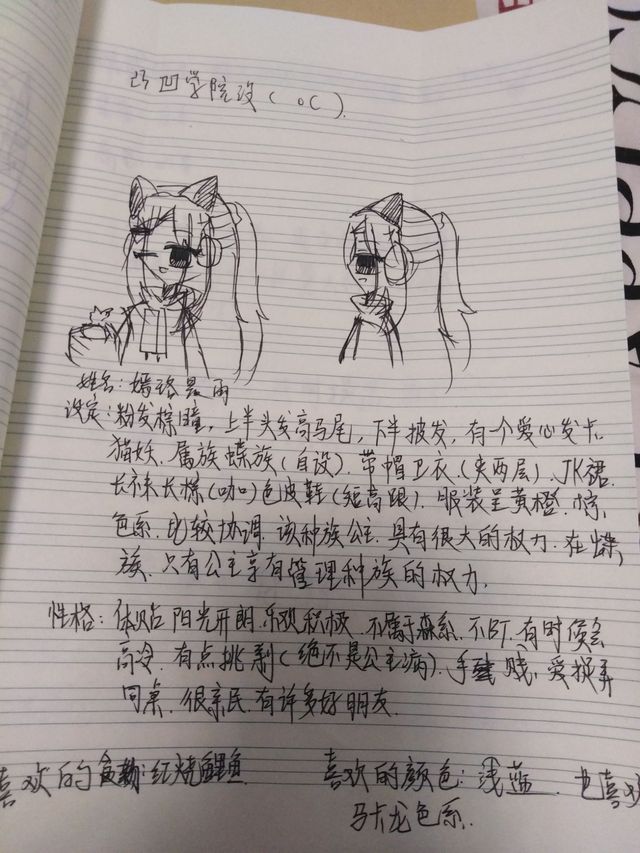 凸凹学院设(OC).
姓名:嫣珞晨雨
设定:粉发棕瞳,上半头发高马尾,下半披发,有一个爱心发卡.
猫妖.属族蝶族(自设).带帽卫衣(夹两层).JK裙.
长袜长棕(咖)色皮鞋(短高跟).服装呈黄橙.棕,
色系.比较协调.该种族公主.具有很大的权力.在蝶,
族.只有公主享有管理种族的权力.
性格:体贴 阳光开朗.乐观积极.不属于森系.不BT.有时候会
高冷.有点挑剔(绝不是公主病).手贱,爱捉弄
同桌.很亲民.有许多好朋友.
喜欢的食物:红烧鲤鱼 喜欢的颜色:浅蓝.也喜欢
马卡龙色系.